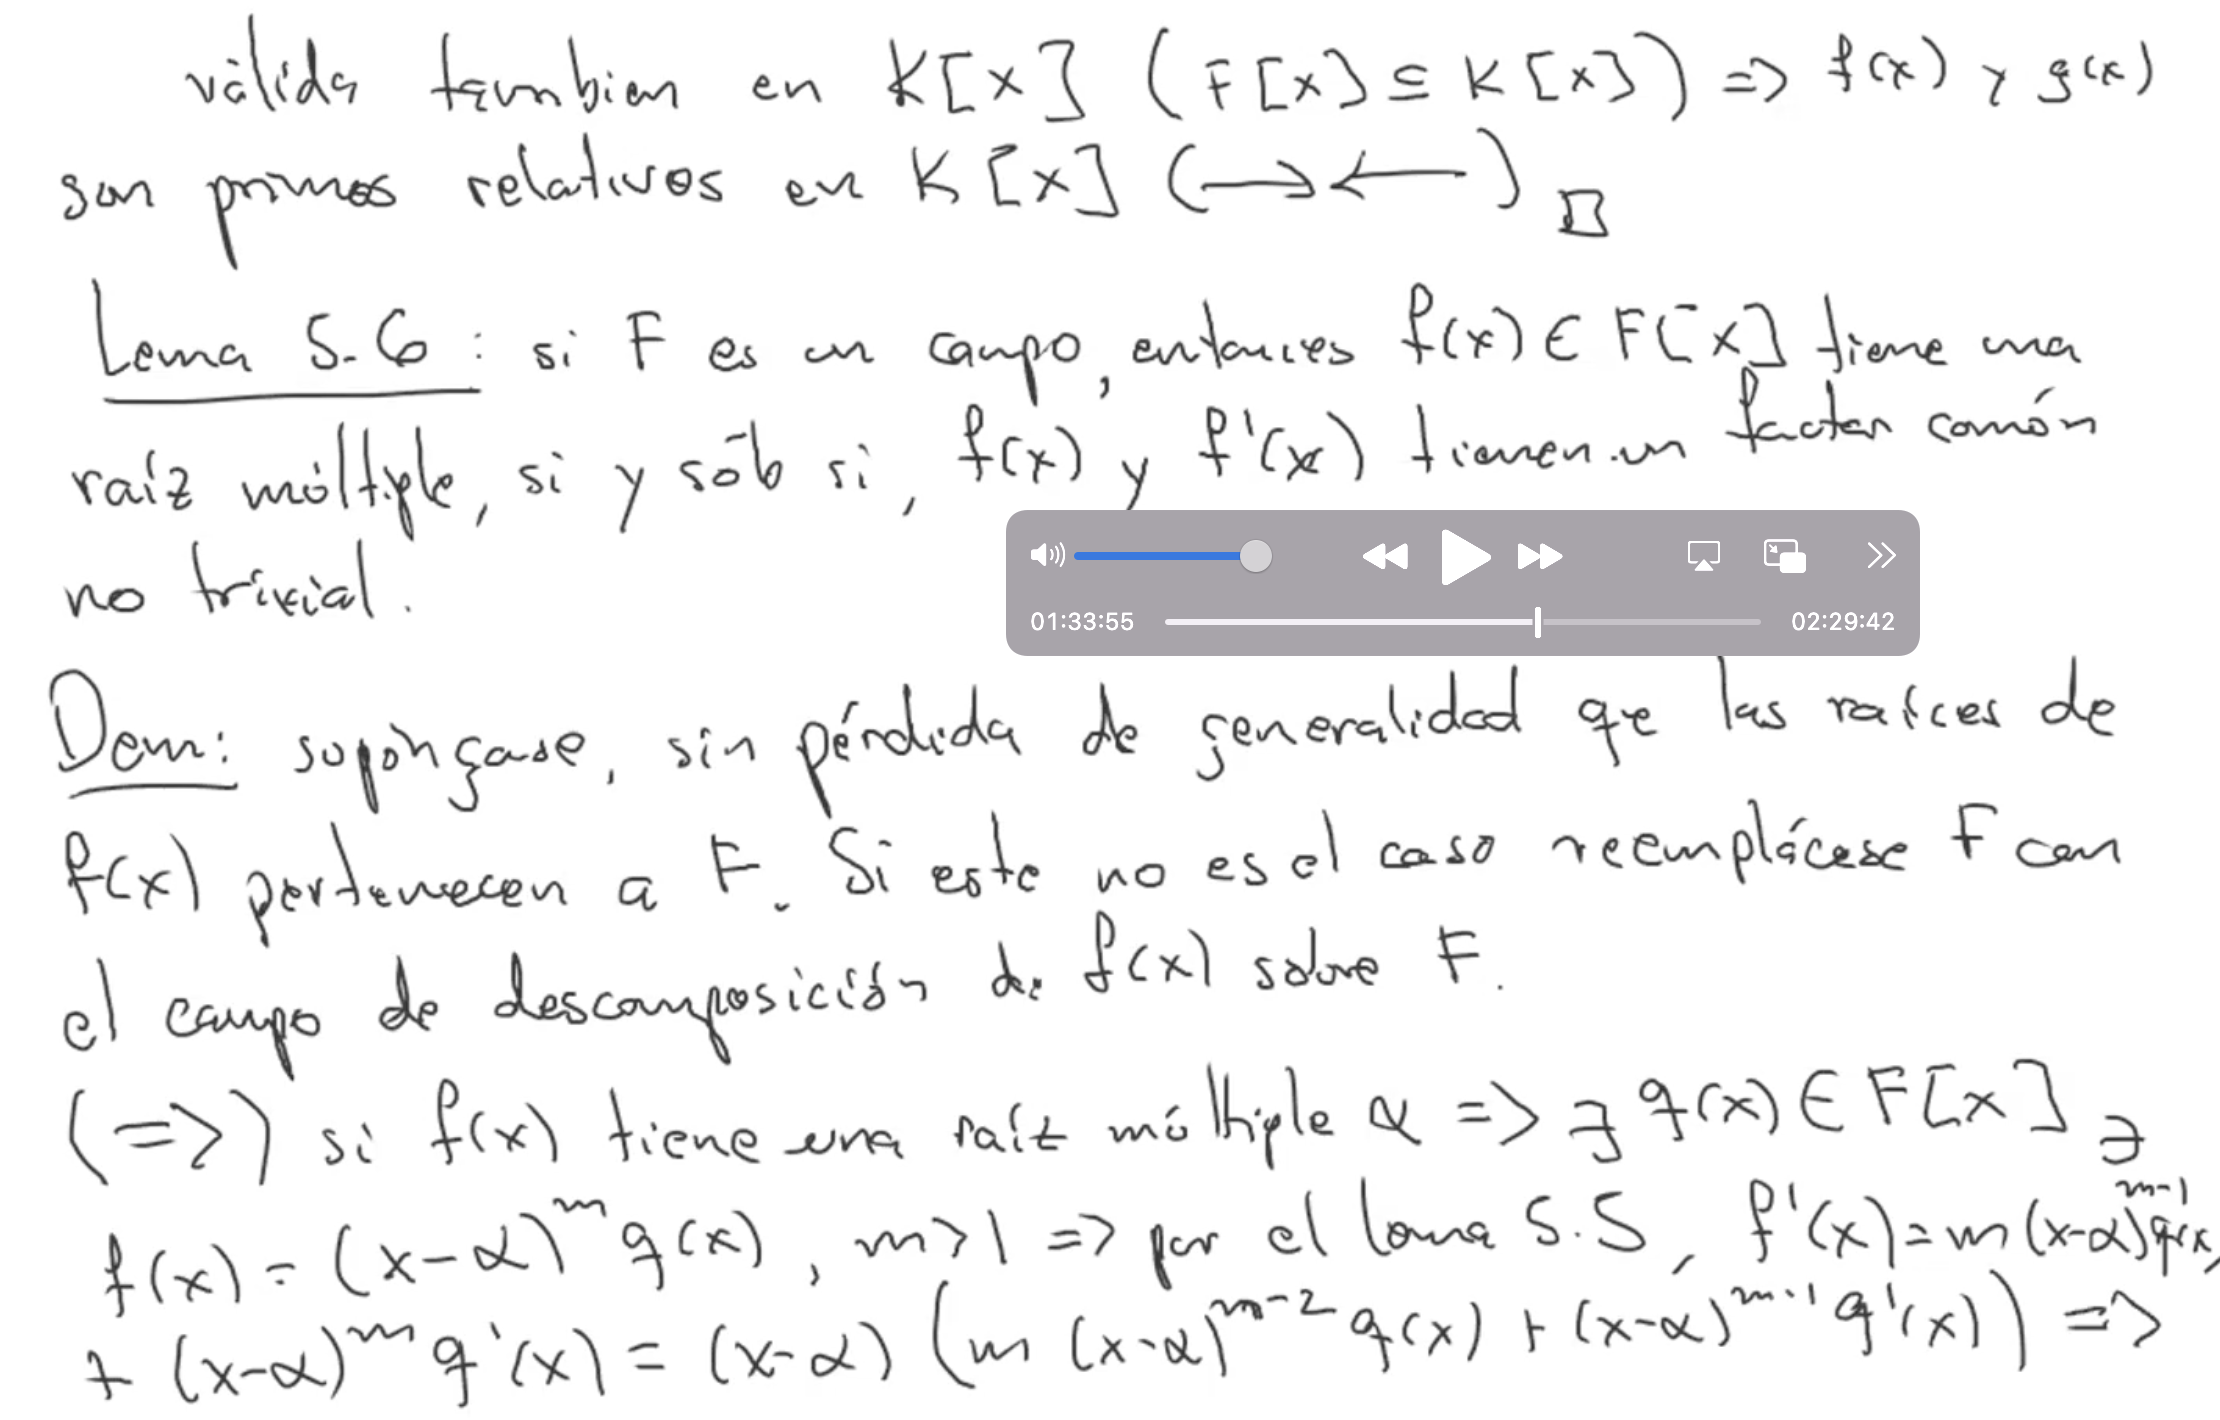 válida tambien en K[x] (F[x] ⊆ K[x]) => f(x) y g(x)
son primos relativos en K[x] (→←) □
Lema 5.6: si F es un campo, entonces f(x) ∈ F[x] tiene una
raíz múltiple, si y sólo si, f(x) y f'(x) tienen un factor común
no trivial.
01:33:55 02:29:42
Dem: supóngase, sin pérdida de generalidad que las raíces de
f(x) pertenecen a F. Si este no es el caso reemplácese F con
el campo de descomposición de f(x) sobre F.
(=>) si f(x) tiene una raíz múltiple α => ∃ q(x) ∈ F[x] ∋
f(x) = (x-α)^m q(x), m>1 => por el lema 5.5, f'(x) = m(x-α)^{m-1} q(x)
+ (x-α)^m q'(x) = (x-α) (m (x-α)^{m-2} q(x) + (x-α)^{m-1} q'(x)) =>